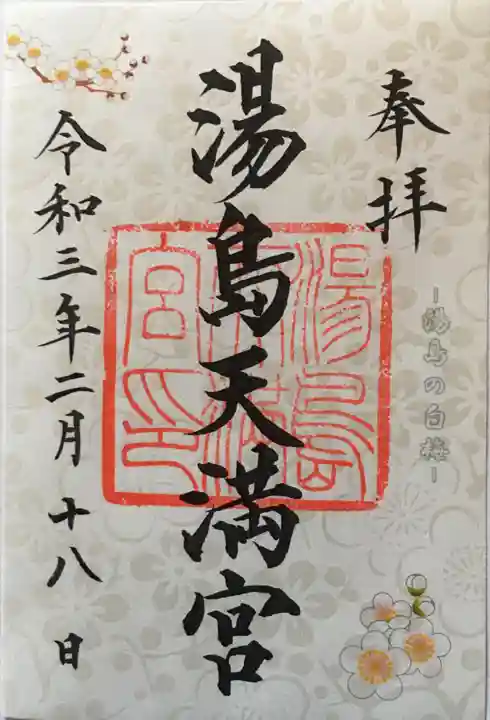 奉拝
－湯島の白梅－
湯島天満宮
湯島
天満
宮印
令和三年二月十八日